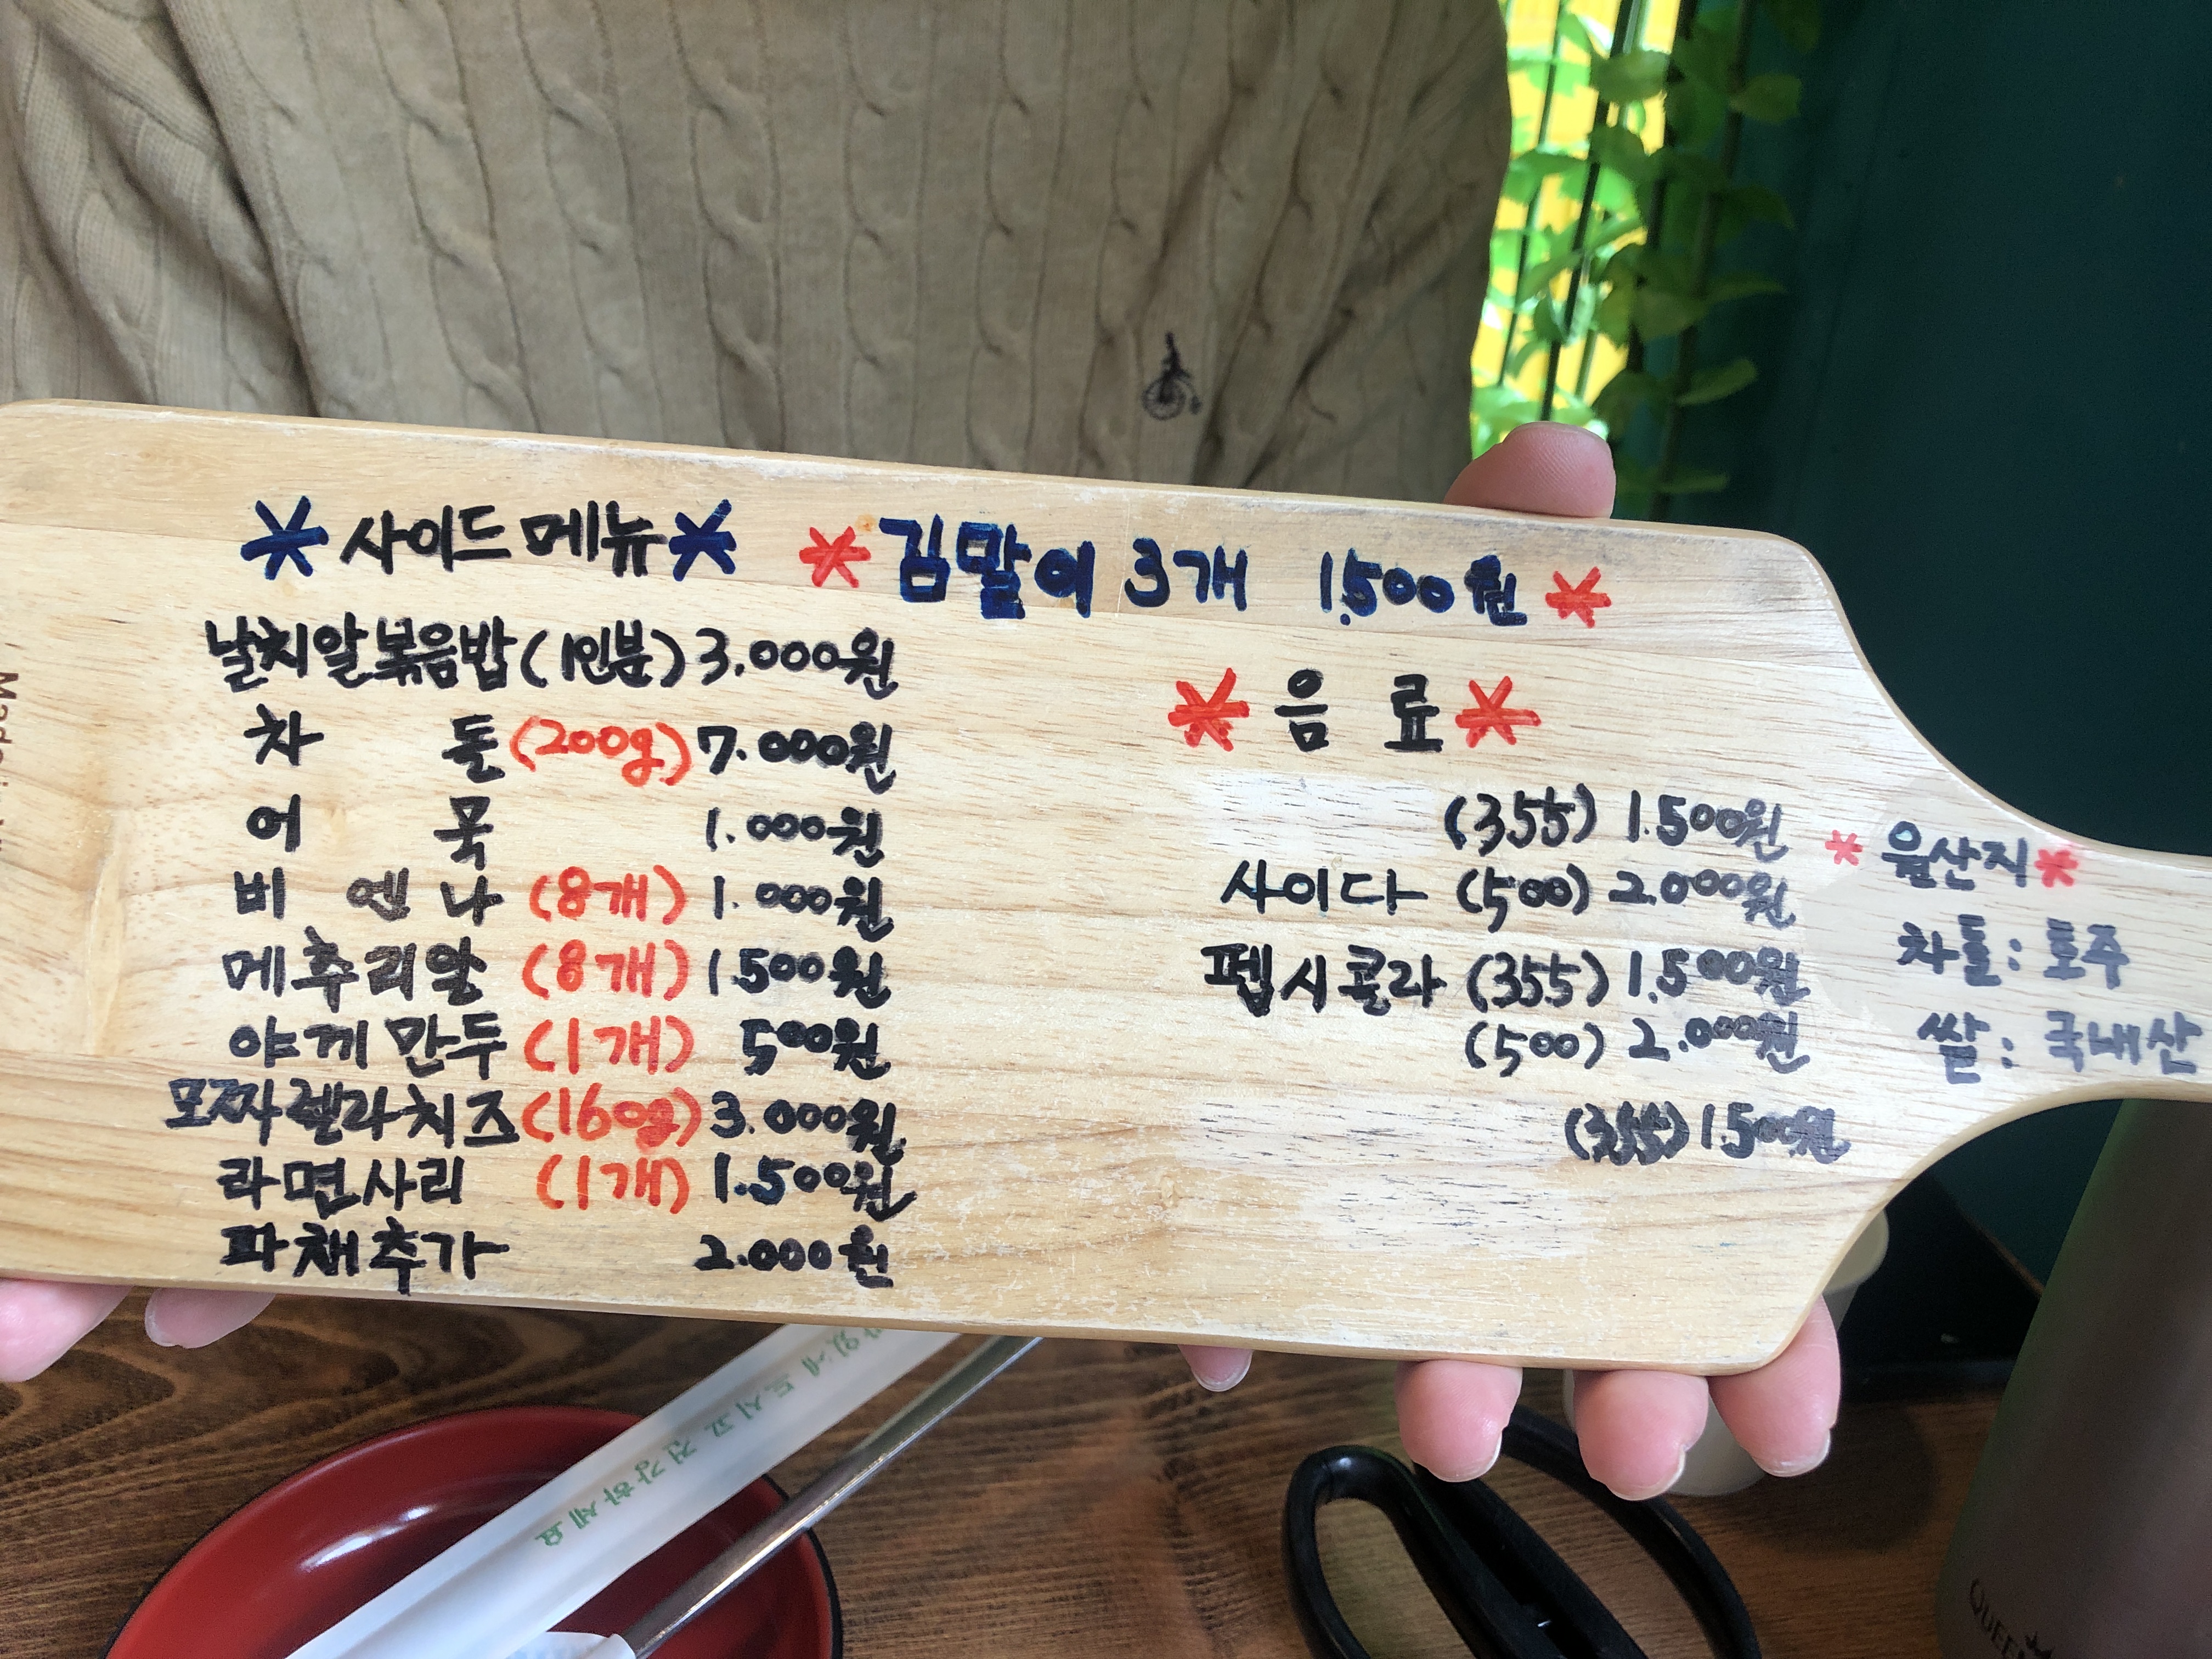 *사이드메뉴*
*김말이 3개 1.500원*
날치알볶음밥(1인분)3.000원
차 돌(200g)7.000원
어 묵 1.000원
비 엔 나(8개) 1.000원
메추리알(8개) 1.500원
야끼만두(1개) 500원
모짜렐라치즈(160g)3.000원
라면사리 (1개) 1.500원
파채추가 2.000원
*음 료*
(355) 1.500원
사이다 (500) 2.000원
펩시콜라 (355) 1.500원
(500) 2.000원
(355) 1.500원
*원산지*
차돌: 호주
쌀: 국내산
드시고 건강하세요
QUEE